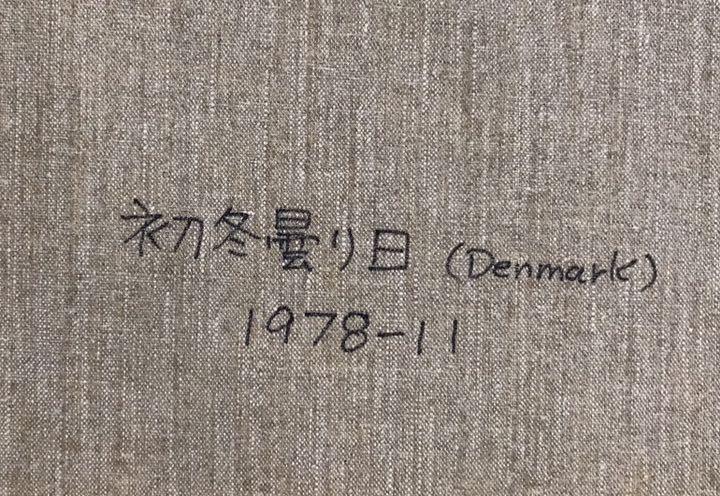 初冬曇り日 (Denmark)
1978-11